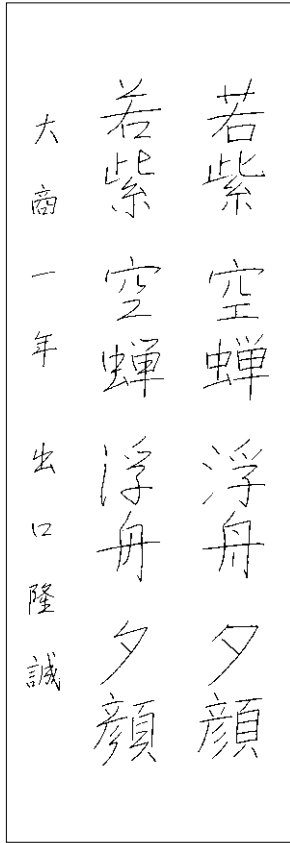 若紫 空蝉 浮舟 夕顔
若紫 空蝉 浮舟 夕顔
大商一年 出口隆誠